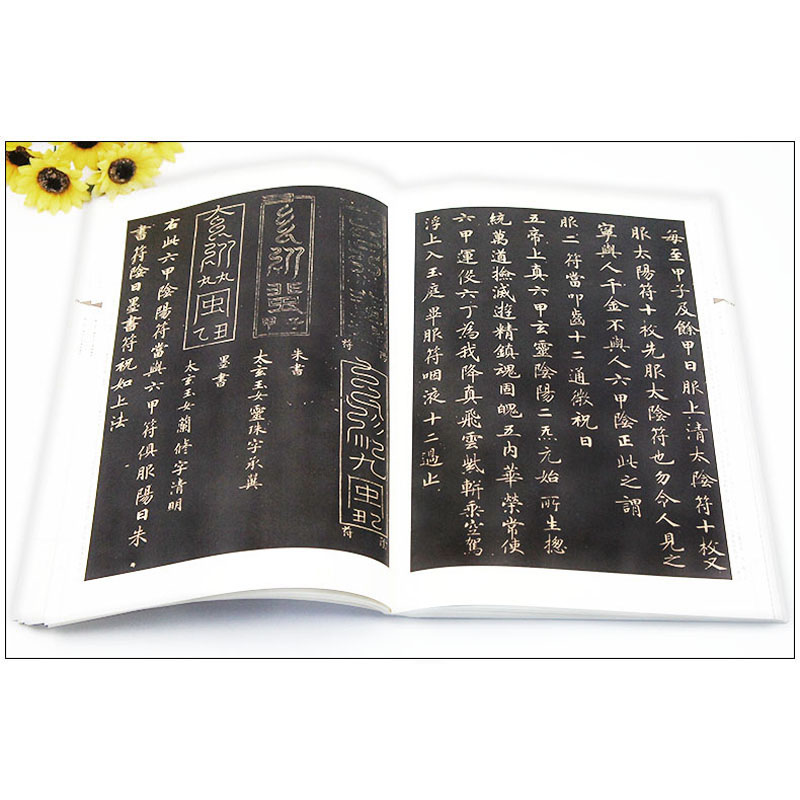 每至甲子及餘甲日服上清太陰符十枚又
服太陽符十枚先服太陰符也勿令人見之
寧與人千金不與人六甲陰正此之謂
服二符當叩齒十二通微祝曰
五帝上真六甲玄靈陰陽二炁元始所生摠
統萬道撿滅遊精鎮魂固魄五内華榮常使
六甲運役六丁為我降真飛雲紫軿乘空駕
浮上入玉庭畢服符咽液十二過止
符
符
朱書
太玄玉女靈珠字承翼
墨書
太玄玉女蘭脩字清明
右此六甲陰陽符當與六甲符俱服陽日朱
書符陰日墨書符祝如上法